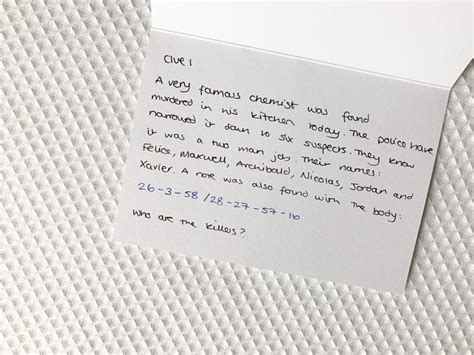 Clue 1
A very famous chemist was found
murdered in his kitchen today. The police have
narrowed it down to six suspects. They know
it was a two man job. Their names:
Felice, Maxwell, Archibald, Nicolas, Jordan and
Xavier. A note was also found with the body:
26-3-58/28-27-57-16
Who are the killers?